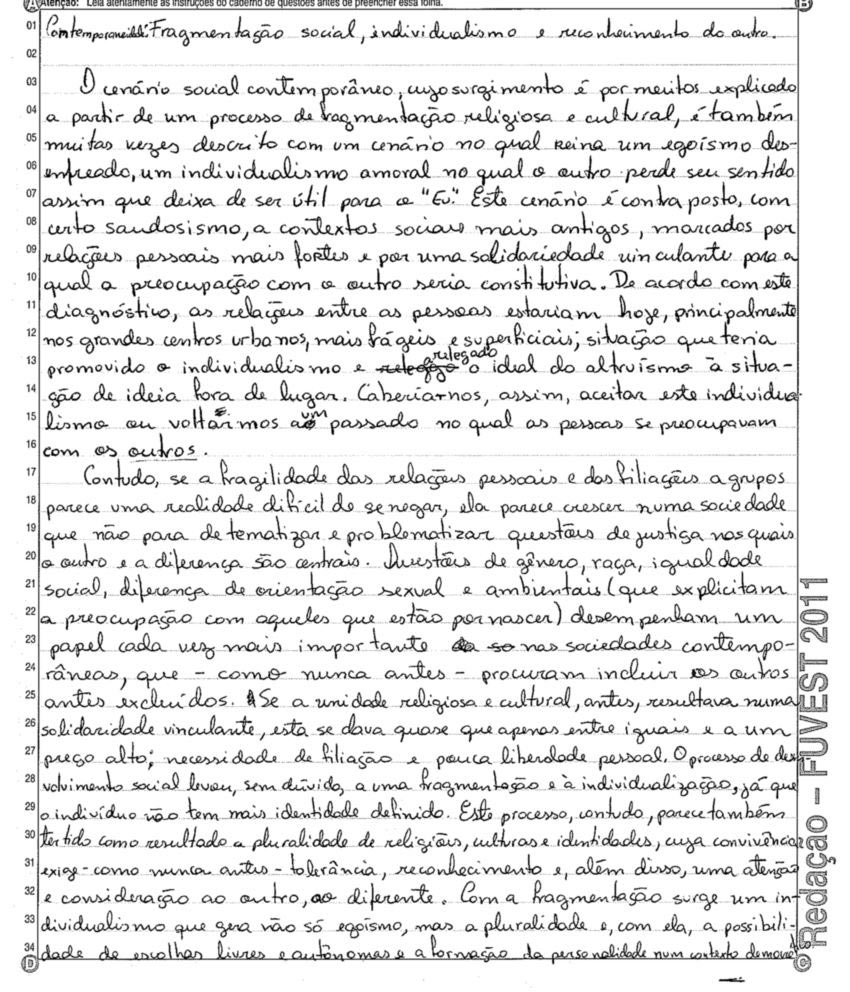 A Atenção: Leia atentamente as instruções do caderno de questões antes de preencher essa folha. B
01 Contemporaneidade: Fragmentação social, individualismo e reconhecimento do outro.
02
03 O cenário social contemporâneo, cujo surgimento é por muitos explicado
04 a partir de um processo de fragmentação religiosa e cultural, é também
05 muitas vezes descrito com um cenário no qual reina um egoísmo des-
06 enfreado, um individualismo amoral no qual o outro perde seu sentido
07 assim que deixa de ser útil para o "Eu". Este cenário é contraposto, com
08 certo saudosismo, a contextos sociais mais antigos, marcados por
09 relações pessoais mais fortes e por uma solidariedade vinculante para a
10 qual a preocupação com o outro seria constitutiva. De acordo com este
11 diagnóstico, as relações entre as pessoas estariam hoje, principalmente
12 nos grandes centros urbanos, mais frágeis e superficiais; situação que teria
13 promovido o individualismo e relegado o ideal do altruísmo à situa-
14 ção de ideia fora de lugar. Caberia-nos, assim, aceitar este individua-
15 lismo ou voltarmos a um passado no qual as pessoas se preocupavam
16 com os outros.
17 Contudo, se a fragilidade das relações pessoais e das filiações a grupos
18 parece uma realidade difícil de se negar, ela parece crescer numa sociedade
19 que não para de tematizar e problematizar questões de justiça nos quais
20 o outro e a diferença são centrais. Questões de gênero, raça, igualdade
21 social, diferença de orientação sexual e ambientais (que explicitam
22 a preocupação com aqueles que estão por nascer) desempenham um
23 papel cada vez mais importante nas sociedades contempo-
24 râneas, que - como nunca antes - procuram incluir os outros
25 antes excluídos. Se a unidade religiosa e cultural, antes, resultava numa
26 solidaridade vinculante, esta se dava quase que apenas entre iguais e a um
27 preço alto; necessidade de filiação e pouca liberdade pessoal. O processo de des-
28 volvimento social levou, sem dúvida, a uma fragmentação e à individualização, já que
29 o indivíduo não tem mais identidade definido. Este processo, contudo, parece também
30 ter tido como resultado a pluralidade de religiões, culturas e identidades, cuja convivência
31 exige - como nunca antes - tolerância, reconhecimento e, além disso, uma atenção
32 e consideração ao outro, ao diferente. Com a fragmentação surge um in-
33 dividualismo que gera não só egoísmo, mas a pluralidade e, com ela, a possibili-
34 dade de escolhas livres e autônomas e a formação da personalidade num contexto
D C
Redação – FUVEST 2011